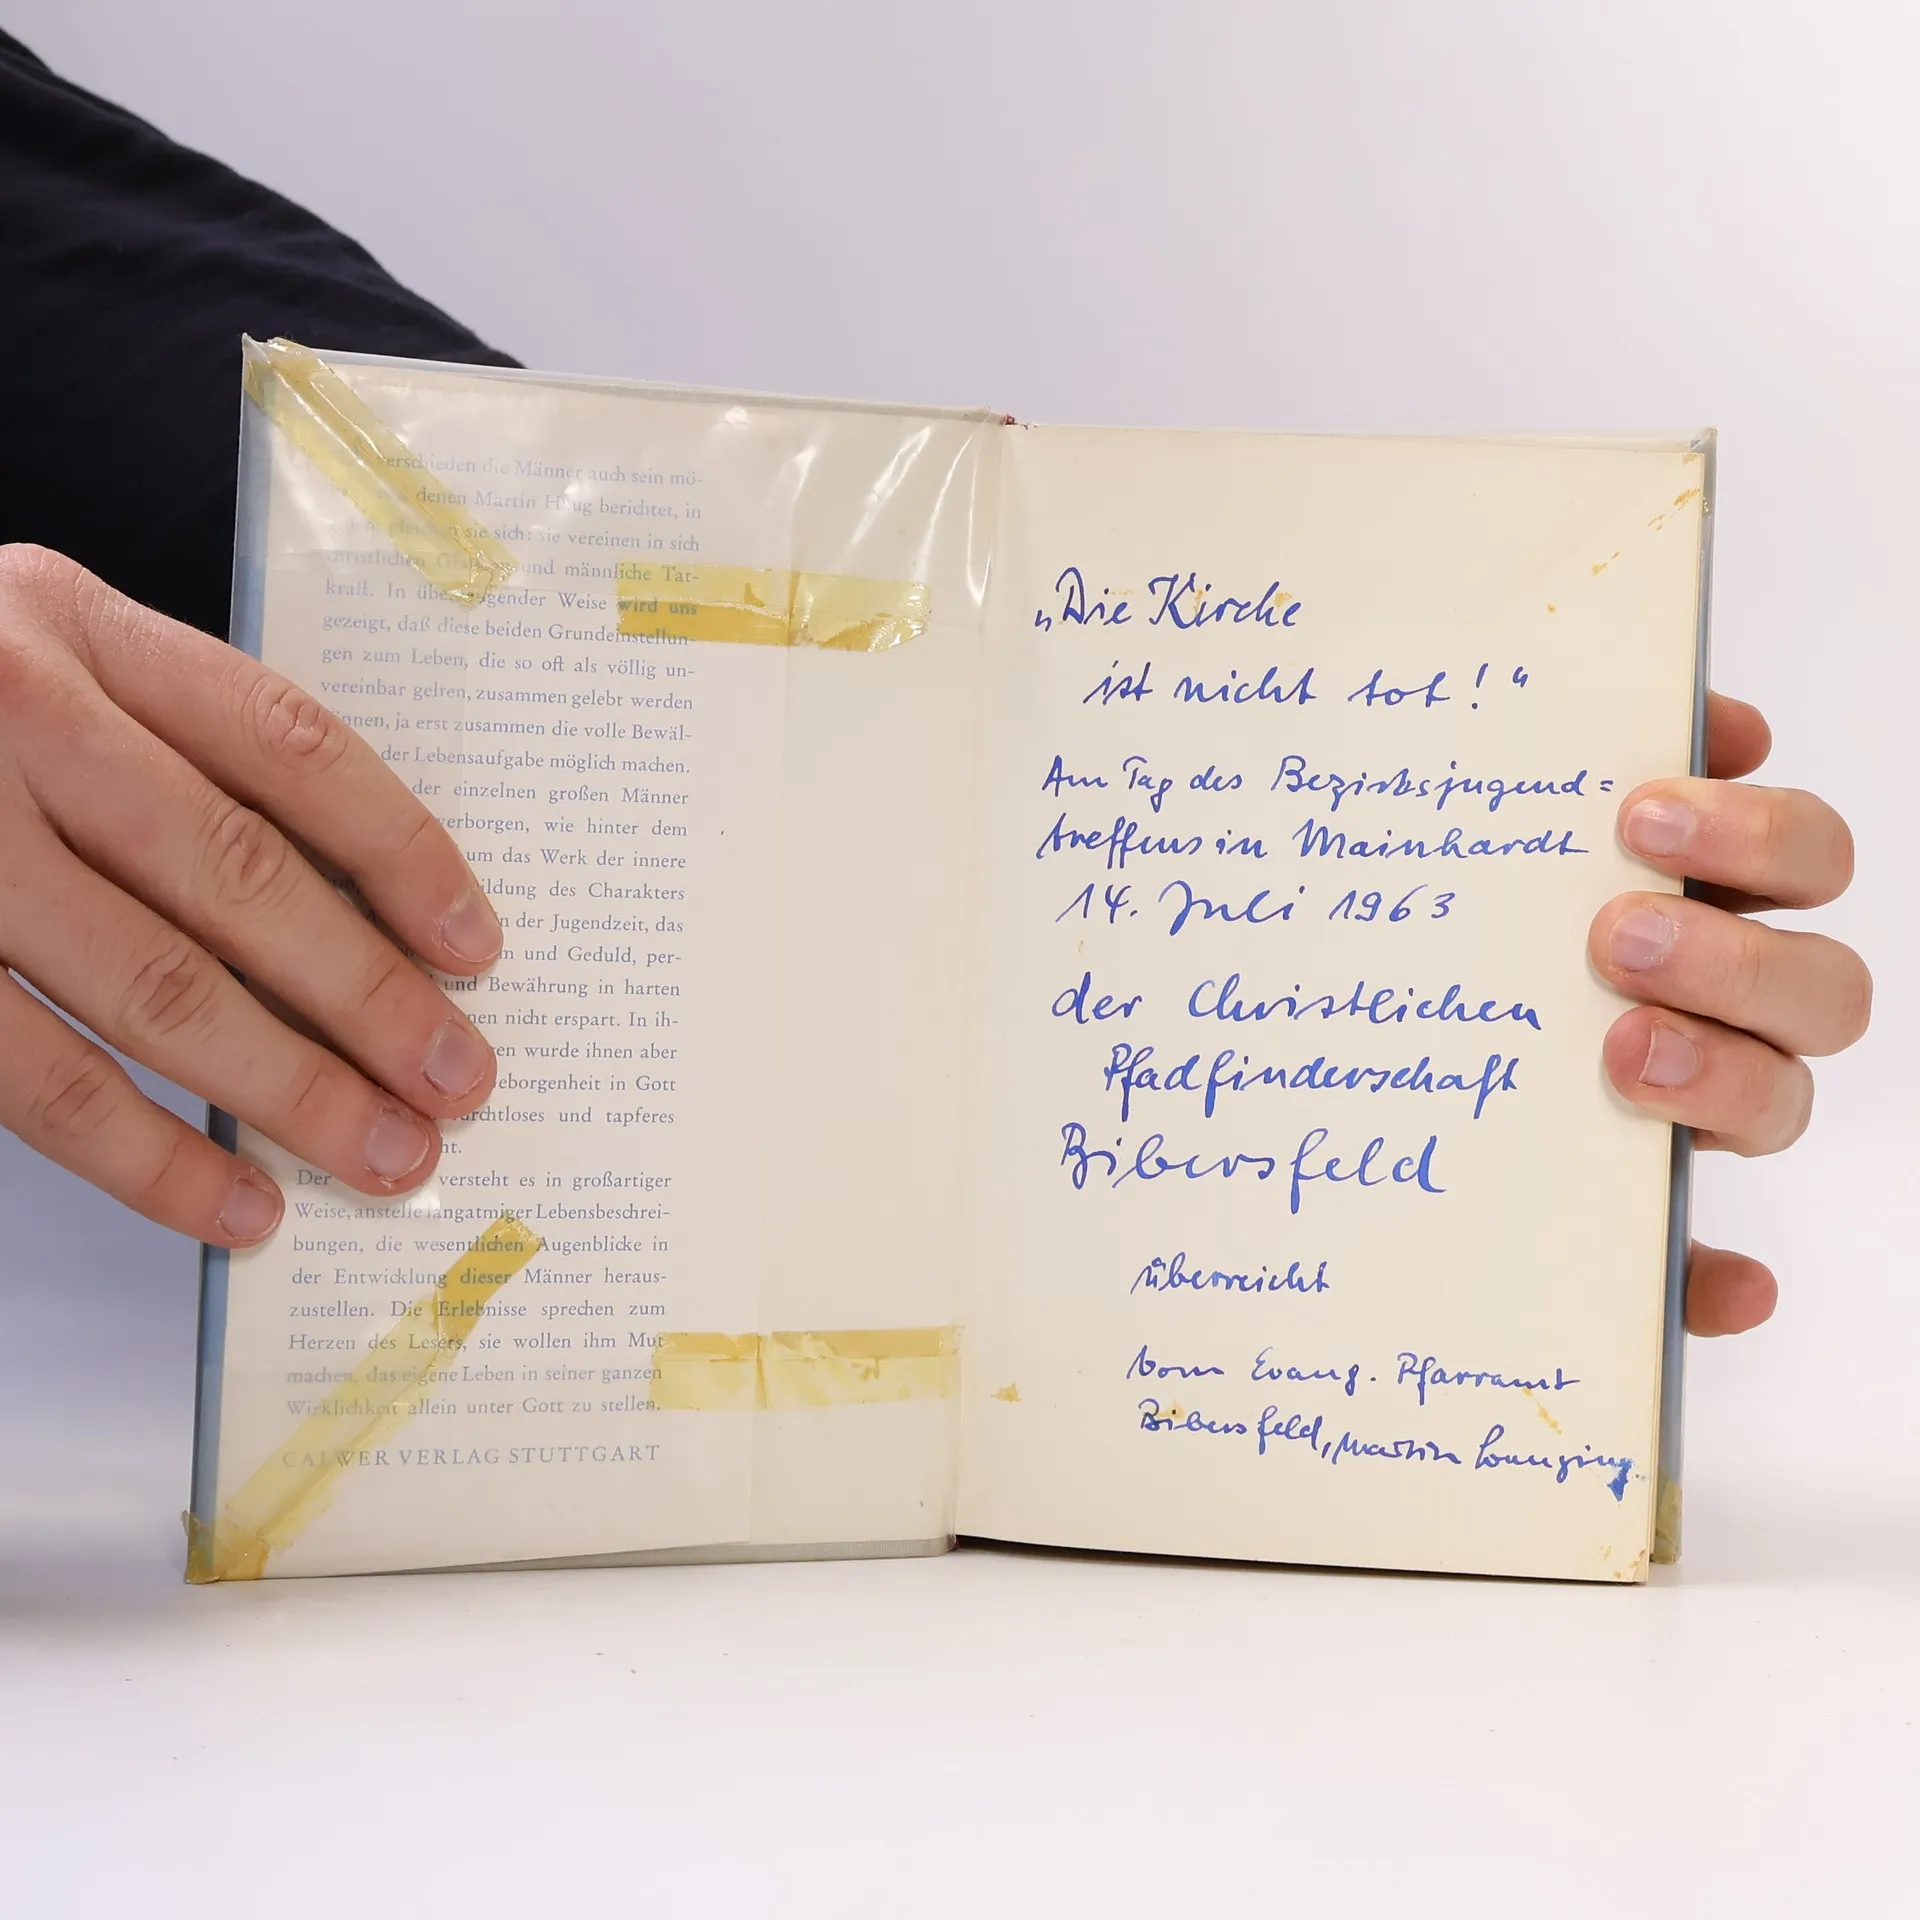 verschieden die Männer auch sein mö-
denen Martin Haug berichtet, in
sie sich: sie vereinen in sich
christlichen und männliche Tat-
kraft. In überzeugender Weise wird uns
gezeigt, daß diese beiden Grundeinstellun-
gen zum Leben, die so oft als völlig un-
vereinbar gelten, zusammen gelebt werden
können, ja erst zusammen die volle Bewäl-
der Lebensaufgabe möglich machen.
der einzelnen großen Männer
verborgen, wie hinter dem
um das Werk der innere
ildung des Charakters
in der Jugendzeit, das
und Geduld, per-
und Bewährung in harten
nen nicht erspart. In ih-
wurde ihnen aber
Geborgenheit in Gott
furchtloses und tapferes
ht.
Der versteht es in großartiger
Weise, anstelle langatmiger Lebensbeschrei-
bungen, die wesentlichen Augenblicke in
der Entwicklung dieser Männer heraus-
zustellen. Die Erlebnisse sprechen zum
Herzen des Lesers, sie wollen ihm Mut
machen, das eigene Leben in seiner ganzen
Wirklichkeit allein unter Gott zu stellen.
CALWER VERLAG STUTTGART
„Die Kirche
ist nicht tot!“
Am Tag des Bezirksjugend=
treffens in Mainhardt
14. Juli 1963
der Christlichen
Pfadfinderschaft
Bibersfeld
überreicht
vom Evang. Pfarramt
Bibersfeld, Martin